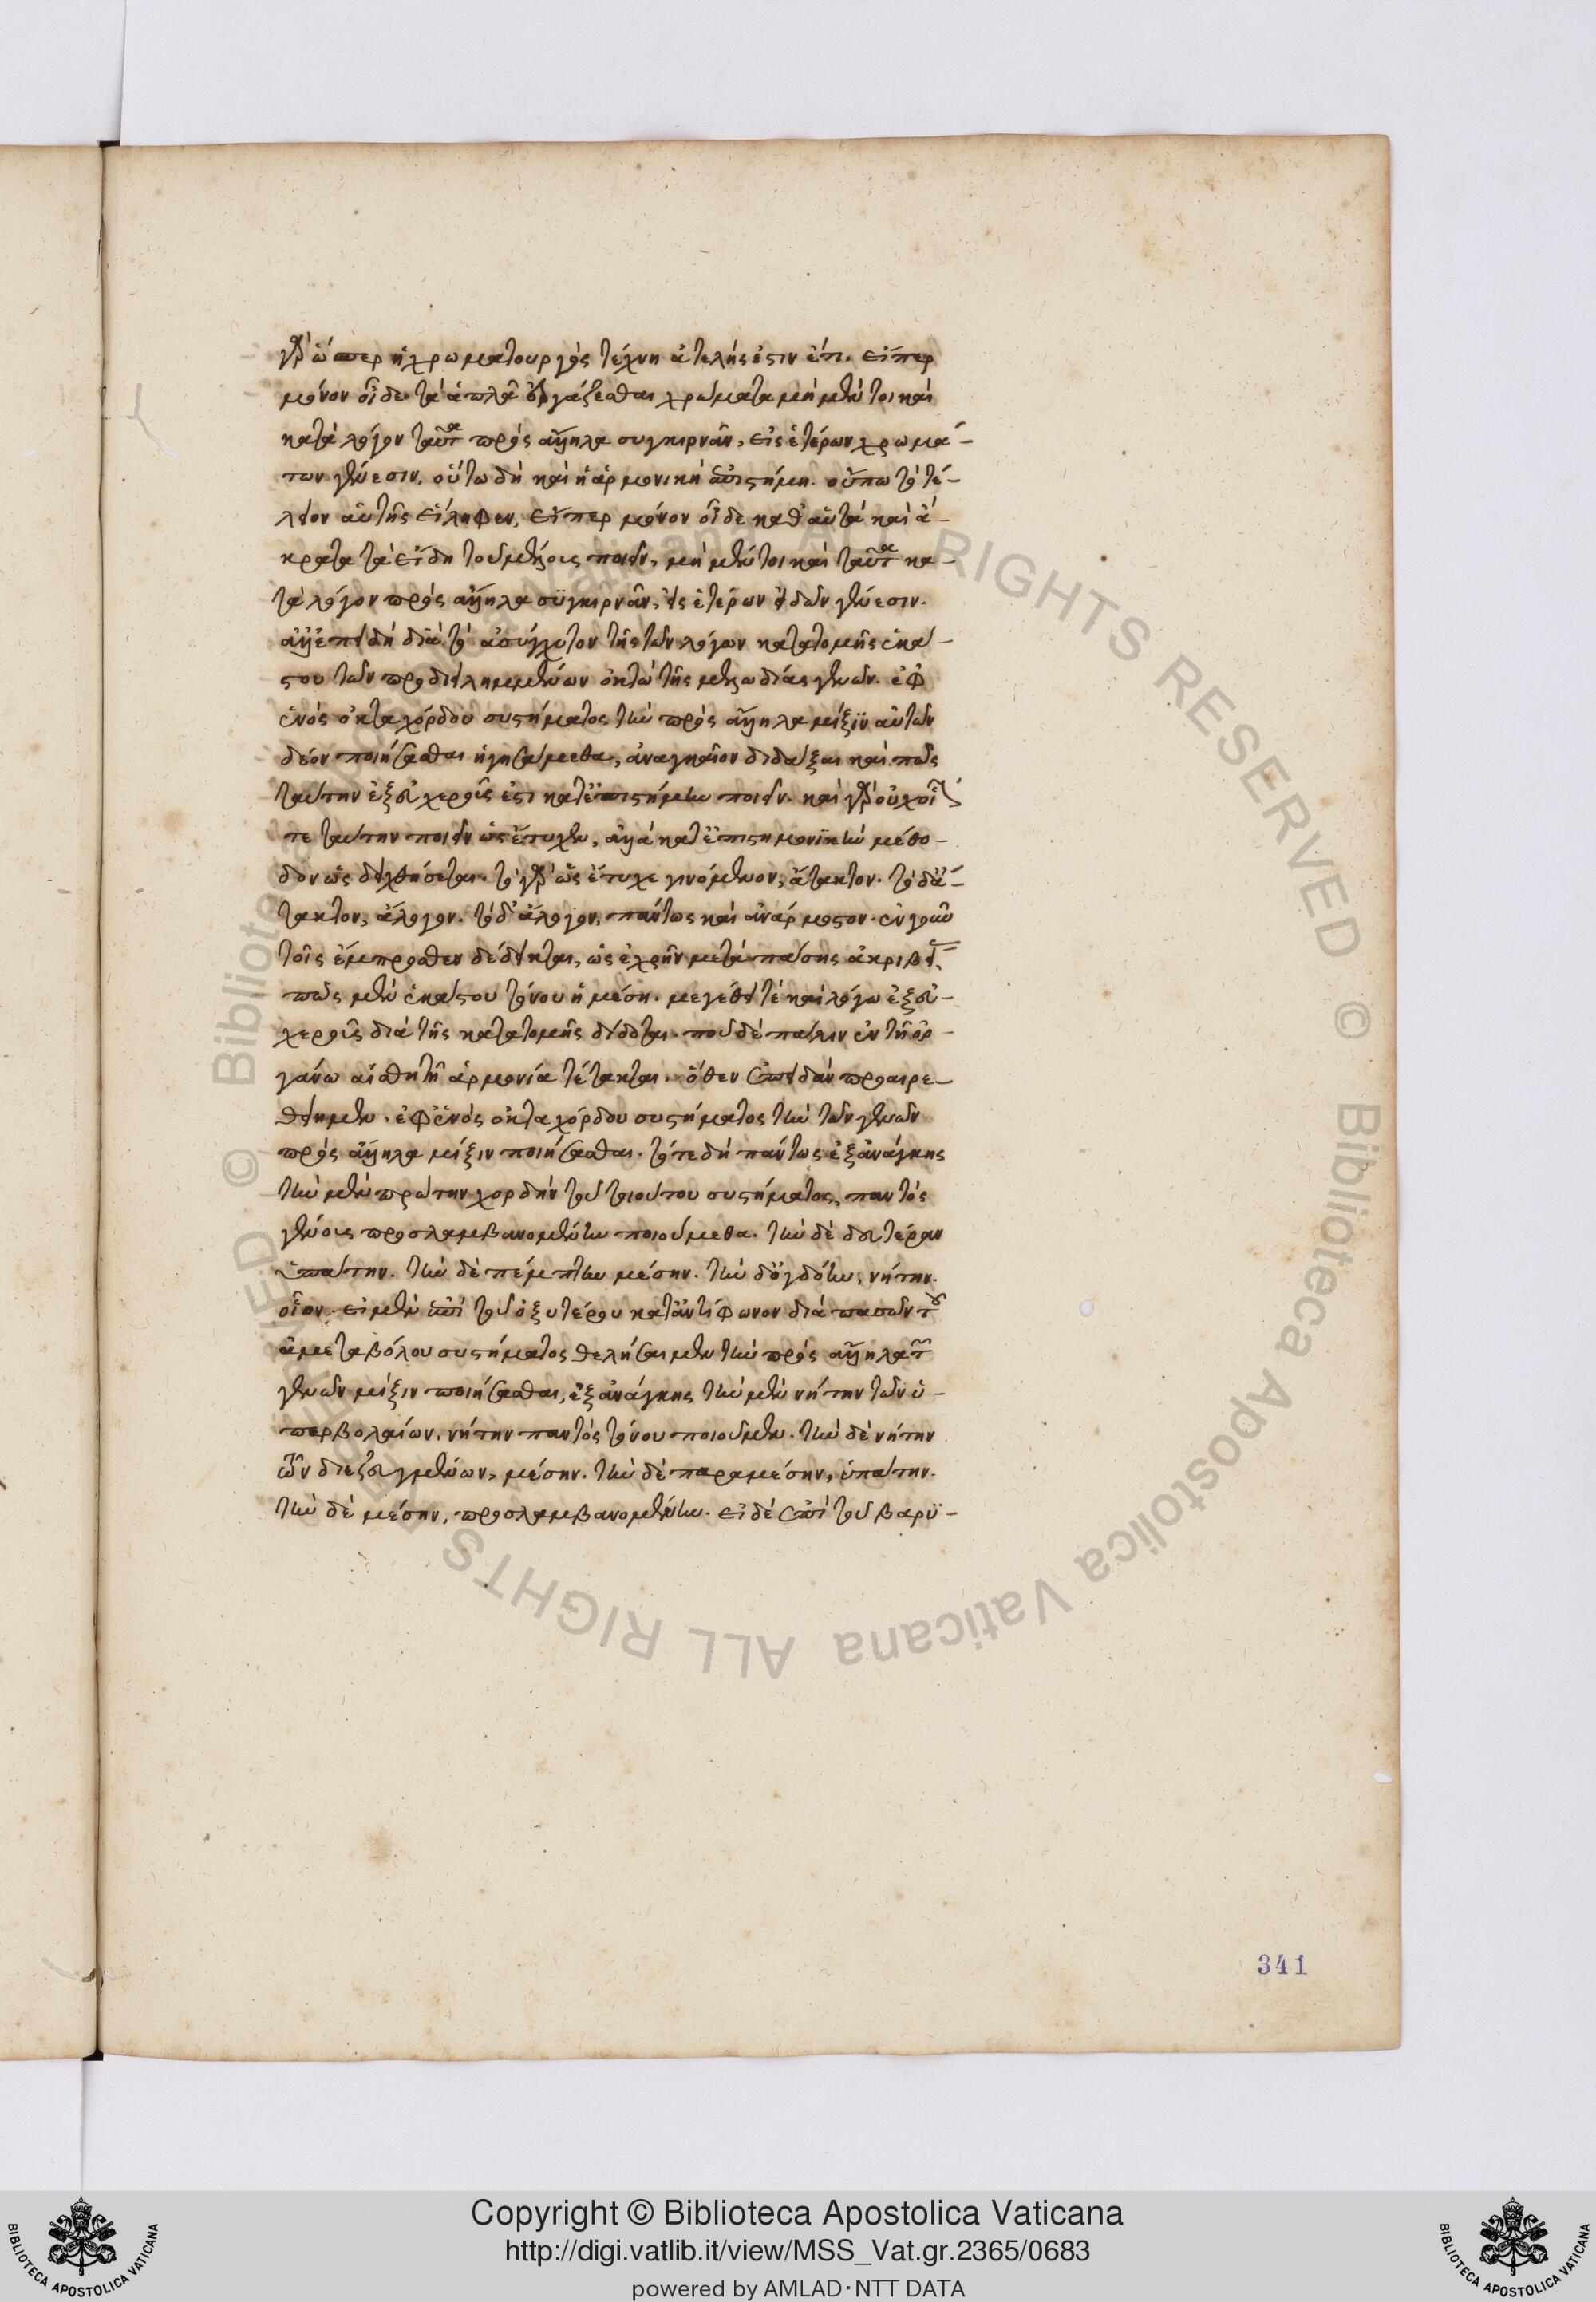 γὰρ ὥσπερ ἡ χρωματουργὸς τέχνη ἀτελής ἐστιν ἔτι. εἴπερ
μόνον οἶδε τὰ ἁπλᾶ ἐργάζεσθαι χρώματα μὴ μέν τοι καὶ
κατὰ λόγον ταῦτα πρὸς ἄλληλα συγκιρνᾶν, εἰς ἑτέρων χρωμά-
των γένεσιν. οὕτω δὴ καὶ ἡ ἁρμονικὴ ἐπιστήμη. οὔπω τὸ τέ-
λειον αὐτῆς εἴληφεν, εἴπερ μόνον οἶδε καθ' αὑτὰ καὶ ἄ-
κρατα τὰ εἴδη τοῦ μέλους ποιεῖν, μὴ μέν τοι καὶ ταῦτα κα-
τὰ λόγον πρὸς ἄλληλα συγκιρνᾶν, εἰς ἑτέρων εἰδῶν γένεσιν.
ἀλλ' ἐπειδὴ διὰ τὸ ἀσύγχυτον τῆς τῶν λόγων κατατομῆς ἑκά-
στου τῶν προδιειλημμένων ὀκτὼ τῆς μελωδίας γενῶν. ἐφ'
ἑνὸς ὀκταχόρδου συστήματος τὴν πρὸς ἄλληλα μίξιν αὐτῶν
δέον ποιήσασθαι ἡγησάμεθα, ἀναγκαῖον διδάξαι καὶ πῶς
ταύτην ἐξ εὐχεροῦς ἔστι κατ' ἐπιστήμην ποιεῖν. καὶ γὰρ οὐχ οἷόν
τε ταύτην ποιεῖν ὡς ἔτυχεν, ἀλλὰ κατ' ἐπιστημονικὴν μέθο-
δον ὡς δειχθήσεται. τὸ γὰρ ὡς ἔτυχε γινόμενον, ἄτακτον. τὸ δ' ἄ-
τακτον, ἄλογον. τὸ δ' ἄλογον, πάντως καὶ ἀνάρμοστον. ἐν γοῦν
τοῖς ἔμπροσθεν δέδεικται, ὡς ἐχρῆν μετὰ πάσης ἀκριβείας
πῶς μὲν ἑκάστου τόνου ἡ μέση. μεγέθει τὲ καὶ λόγω ἐξ εὐ-
χεροῦς διὰ τῆς κατατομῆς δίδοται. ποῦ δὲ πάλιν ἐν τῇ ὀρ-
γάνω αἰσθητῇ ἁρμονία τέτακται. ὅθεν ἐπειδὰν προαιρε-
θείημεν. ἐφ' ἑνὸς ὀκταχόρδου συστήματος τὴν τῶν γενῶν
πρὸς ἄλληλα μίξιν ποιήσασθαι. τότε δὴ πάντως ἐξ ἀνάγκης
τὴν μὲν πρώτην χορδὴν τοῦ τοιούτου συστήματος, παντὸς
γένους προσλαμβανομένην ποιούμεθα. τὴν δὲ δευτέραν
ὑπάτην. τὴν δὲ πέμπτην μέσην. τὴν δ' ὀγδόην, νήτην.
οἷον. εἰ μὲν ἐπὶ τοῦ ὀξυτέρου κατ' ἀντίφωνον διὰ πασῶν τοῦ
ἀμεταβόλου συστήματος θελήσαιμεν τὴν πρὸς ἄλληλα τῶν
γενῶν μίξιν ποιήσασθαι, ἐξ ἀνάγκης τὴν μὲν νήτην τῶν ὑ-
περβολαίων, νήτην παντὸς τόνου ποιοῦμεν. τὴν δὲ νήτην
τῶν διεζευγμένων, μέσην. τὴν δὲ παραμέσην, ὑπάτην.
τὴν δὲ μέσην, προσλαμβανομένην. εἰ δὲ ἐπὶ τοῦ βαρυ-
341
© Biblioteca Apostolica Vaticana ALL RIGHTS RESERVED © Biblioteca Apostolica Vaticana ALL RIGHTS RESERVED
Copyright © Biblioteca Apostolica Vaticana
http://digi.vatlib.it/view/MSS_Vat.gr.2365/0683
powered by AMLAD·NTT DATA
BIBLIOTECA APOSTOLICA VATICANA
BIBLIOTECA APOSTOLICA VATICANA